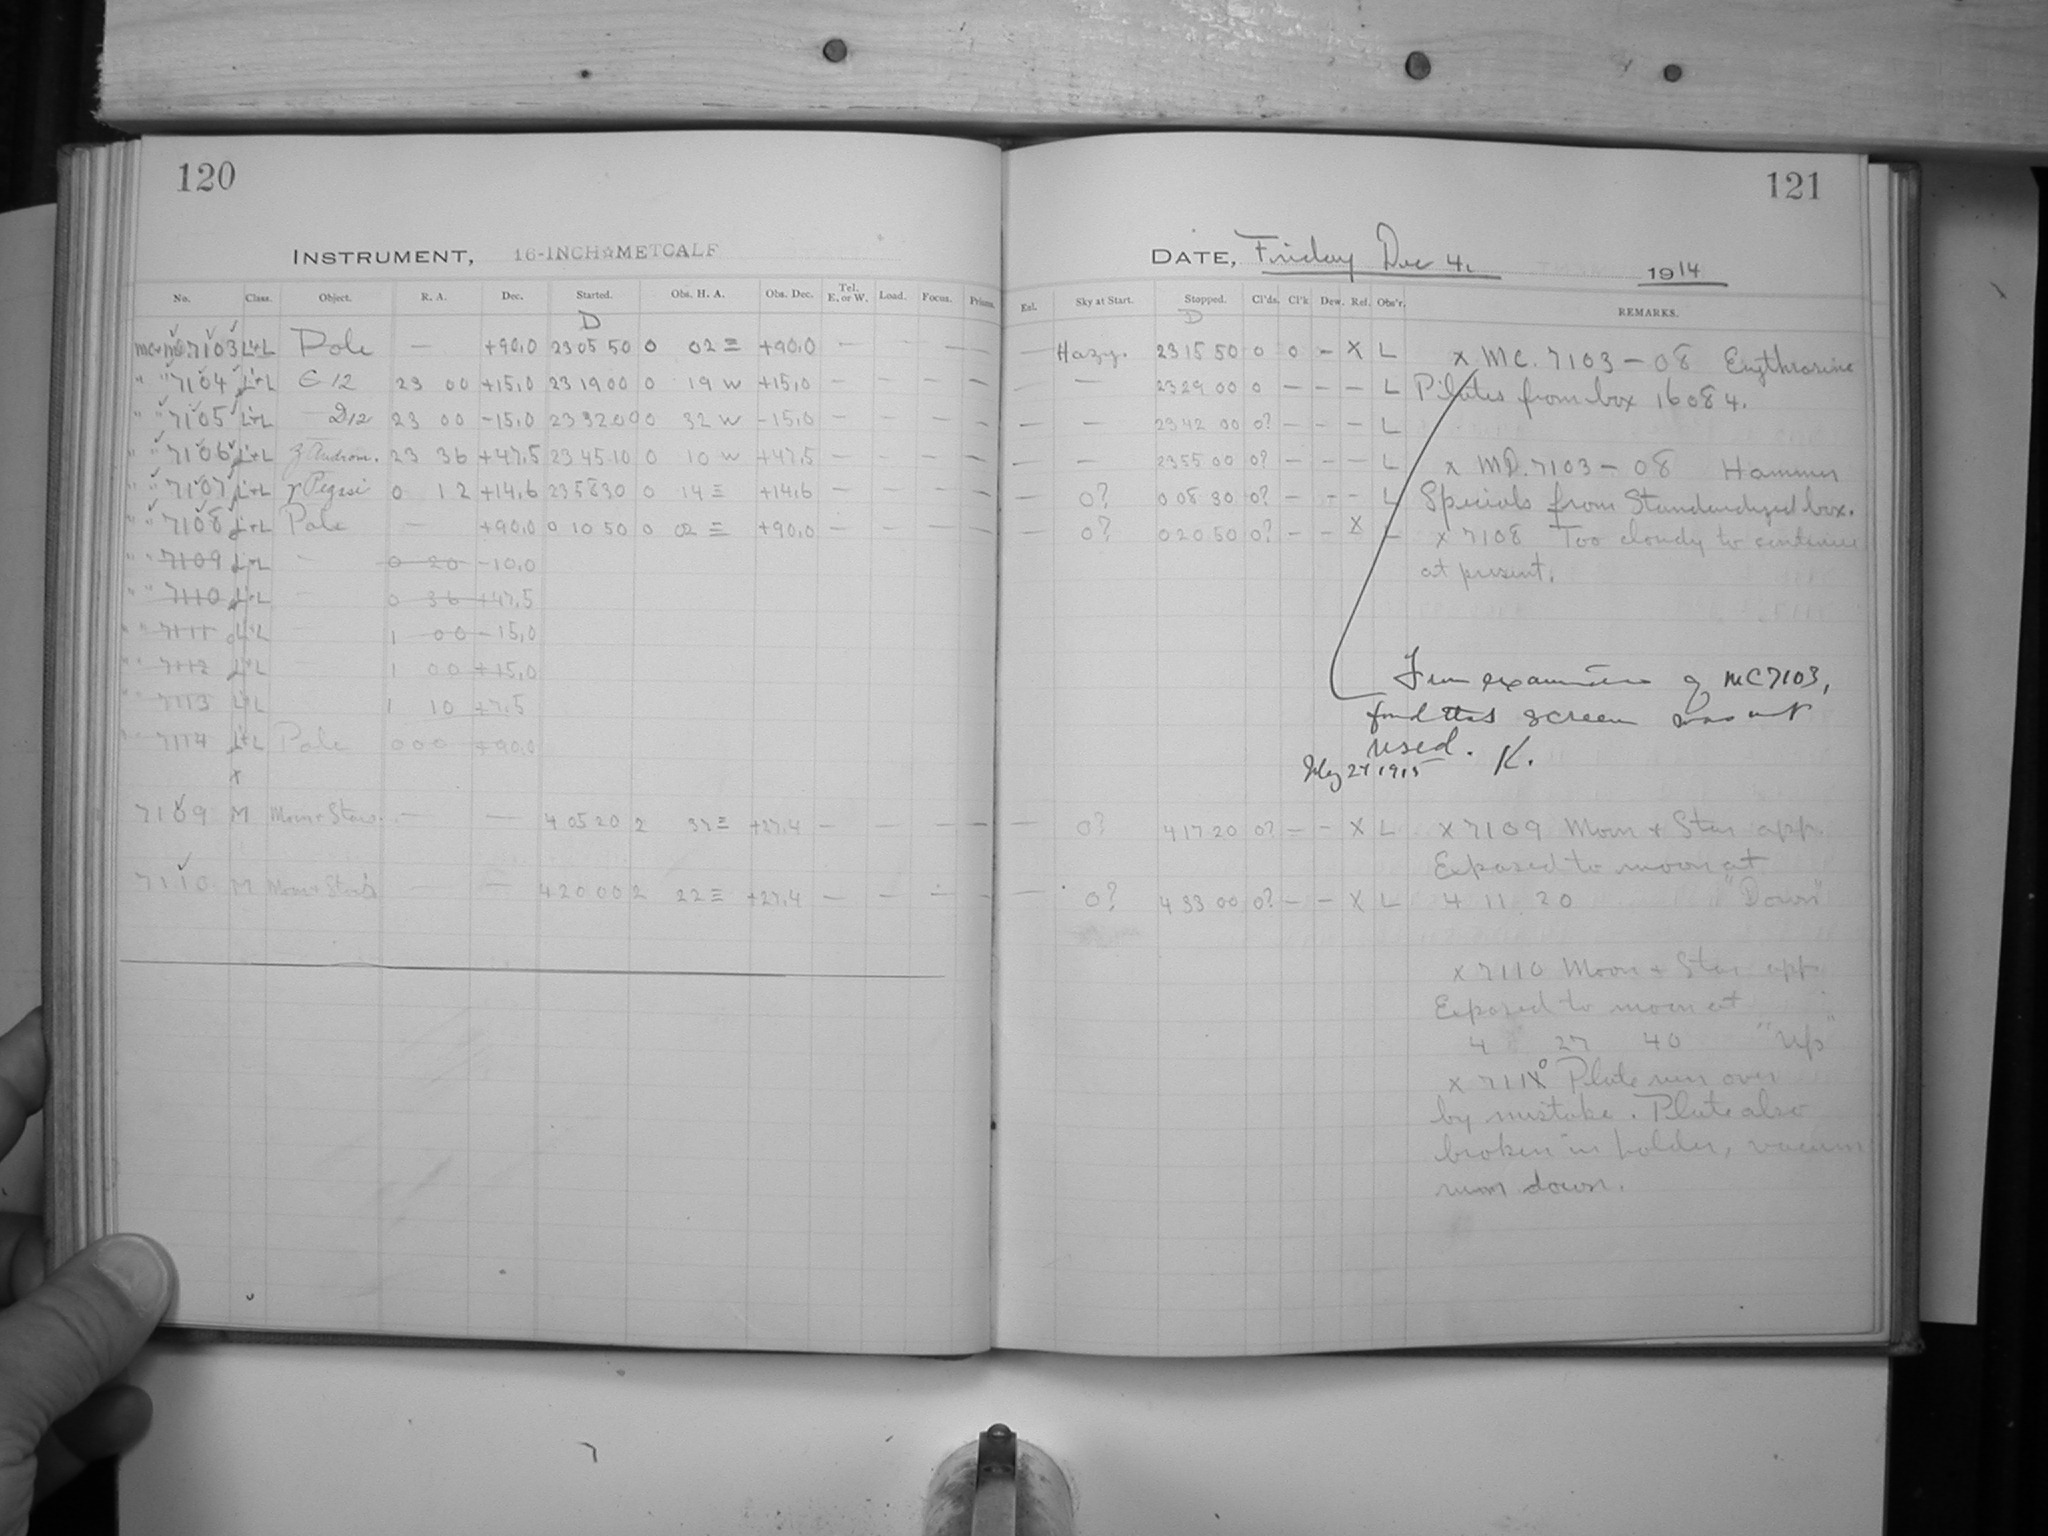 120
INSTRUMENT, 16-INCH☆METCALF
No. Class. Object. R. A. Dec. Started. Obs. H. A. Obs. Dec. Tel. E. or W. Load. Focus. Prisms.
D
MC+MD 7103 L+L Pole — +90,0 23 05 50 0 02 E +90,0 — — — — —
" " 7104 L+L E 12 23 00 +15,0 23 19 00 0 19 W +15,0 — — — —
" " 7105 L+L D12 23 00 -15,0 23 32 00 0 32 W -15,0 — — — —
" " 7106 L+L z Androm. 23 36 +47,5 23 45 10 0 10 W +47,5 — — — —
" " 7107 L+L γ Pegasi 0 12 +14,6 23 58 30 0 14 E +14,6 — — — —
" " 7108 L+L Pole — +90,0 0 10 50 0 02 E +90,0 — — — —
" " 7109 L+L — 0 20 -10,0
" " 7110 L+L — 0 36 +47,5
" " 7111 L+L — 1 00 -15,0
" " 7112 L+L — 1 00 +15,0
" " 7113 L+L — 1 10 +7,5
" " 7114 L+L Pole 0 00 +90,0
x
7109 M Moon+Stars. — — 4 05 20 2 37 E +27,4 — — — —
7110 M Moon+Stars — — 4 20 00 2 22 E +27,4 — — — —
121
DATE, Friday Dec 4. 1914
Enl. Sky at Start. Stopped. Cl'ds. Cl'k Dew. Ref. Obs'r. REMARKS.
D
— Hazy. 23 15 50 0 0 — X L x MC. 7103–08 Erythrosine
— — 23 29 00 0 — — — L Plates from box 16084.
— — 23 42 00 0? — — — L
— — 23 55 00 0? — — — L x MD. 7103–08 Hammer
— 0? 0 08 30 0? — — — L Specials from Standardized box.
— 0? 0 20 50 0? — — X L x 7108 Too cloudy to continue
at present.
From examination of MC7103,
find that screen was not
used. K.
27 1915
— 0? 4 17 20 0? — — X L x 7109 Moon + Star app.
Exposed to moon at
— 0? 4 33 00 0? — — X L 4 11 20 "Down"
x 7110 Moon + Star app
Exposed to moon at
4 27 40 "Up"
x 7110 Plate run over
by mistake. Plate also
broken in holder, vacuum
run down.